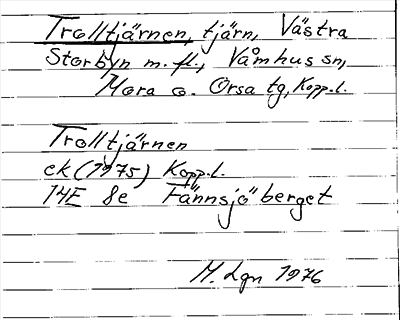 Trolltjärnen, tjärn, Västra
Storbyn m.fl., Våmhus sn,
Mora o. Orsa tg, Kopp.l.
Trolltjärnen
ek (1975) Kopp.l.
14E 8e Fännsjöberget
M. Lgn 1976